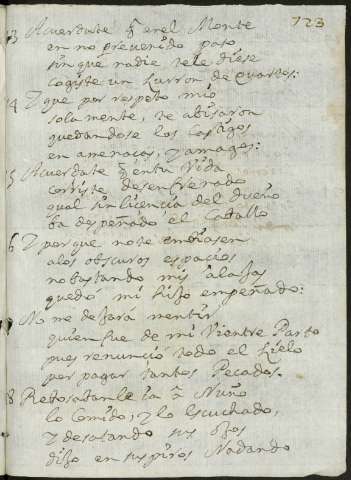 723
3 Acuerdate q̃ en el Monte
en no prevenido pato
sin que nadie te le diese
cogiste un surron de quartos:
4 Y que por respeto mio
sola mente, te abisaron
quedandose los Castigos
en amenaças, y amagos:
5 Acuerdate q̃ en tu Vida
corriste desenfrenado
qual sin licencia del dueño
ba despeñado el Caballo
6 Y porque no te embiasen
a los obscuros espacios
no bastando mis alajas
quedó mi hijo empeñado:
7 No me dejará mentir
quien fue de mi Vientre Parto
pues renunció todo el Cielo
por pagar tantos Pecados.
8 a Nuño
lo Comido, y lo Escuchado,
y desatando sus ojos
dijo en suspiros Nadando